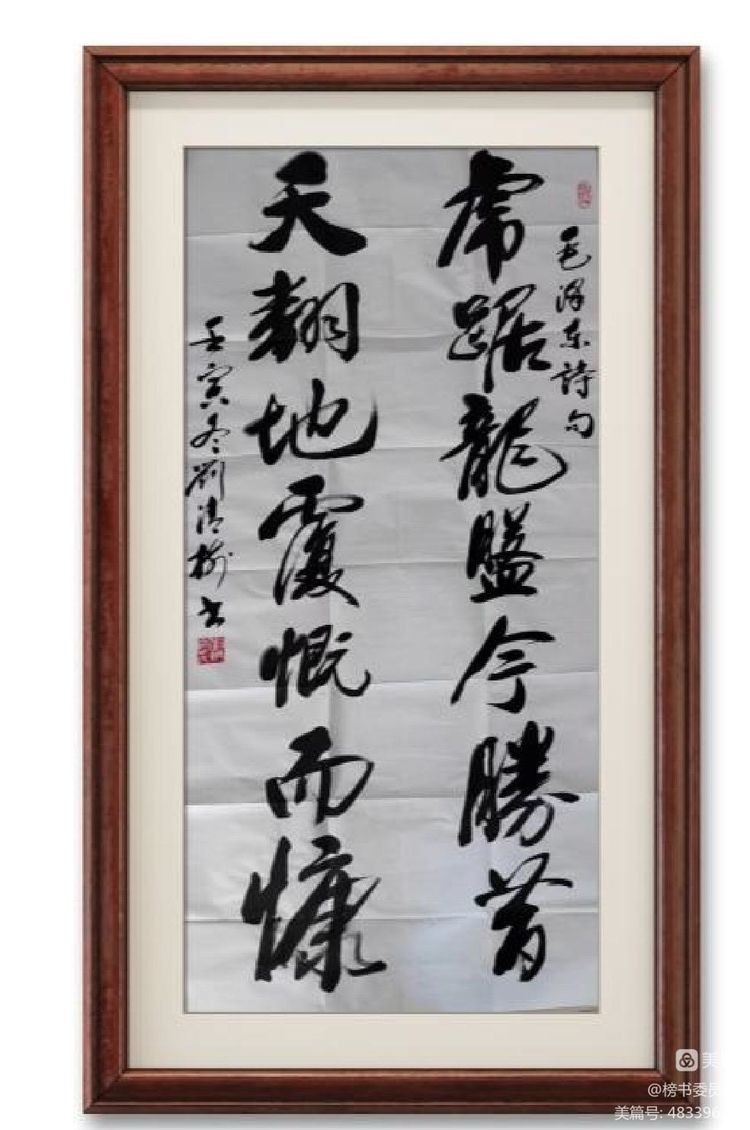 毛泽东詩句
虎踞龍盤今勝昔
天翻地覆慨而慷
壬寅冬劉清书
美
@榜书委员
美篇号: 483396